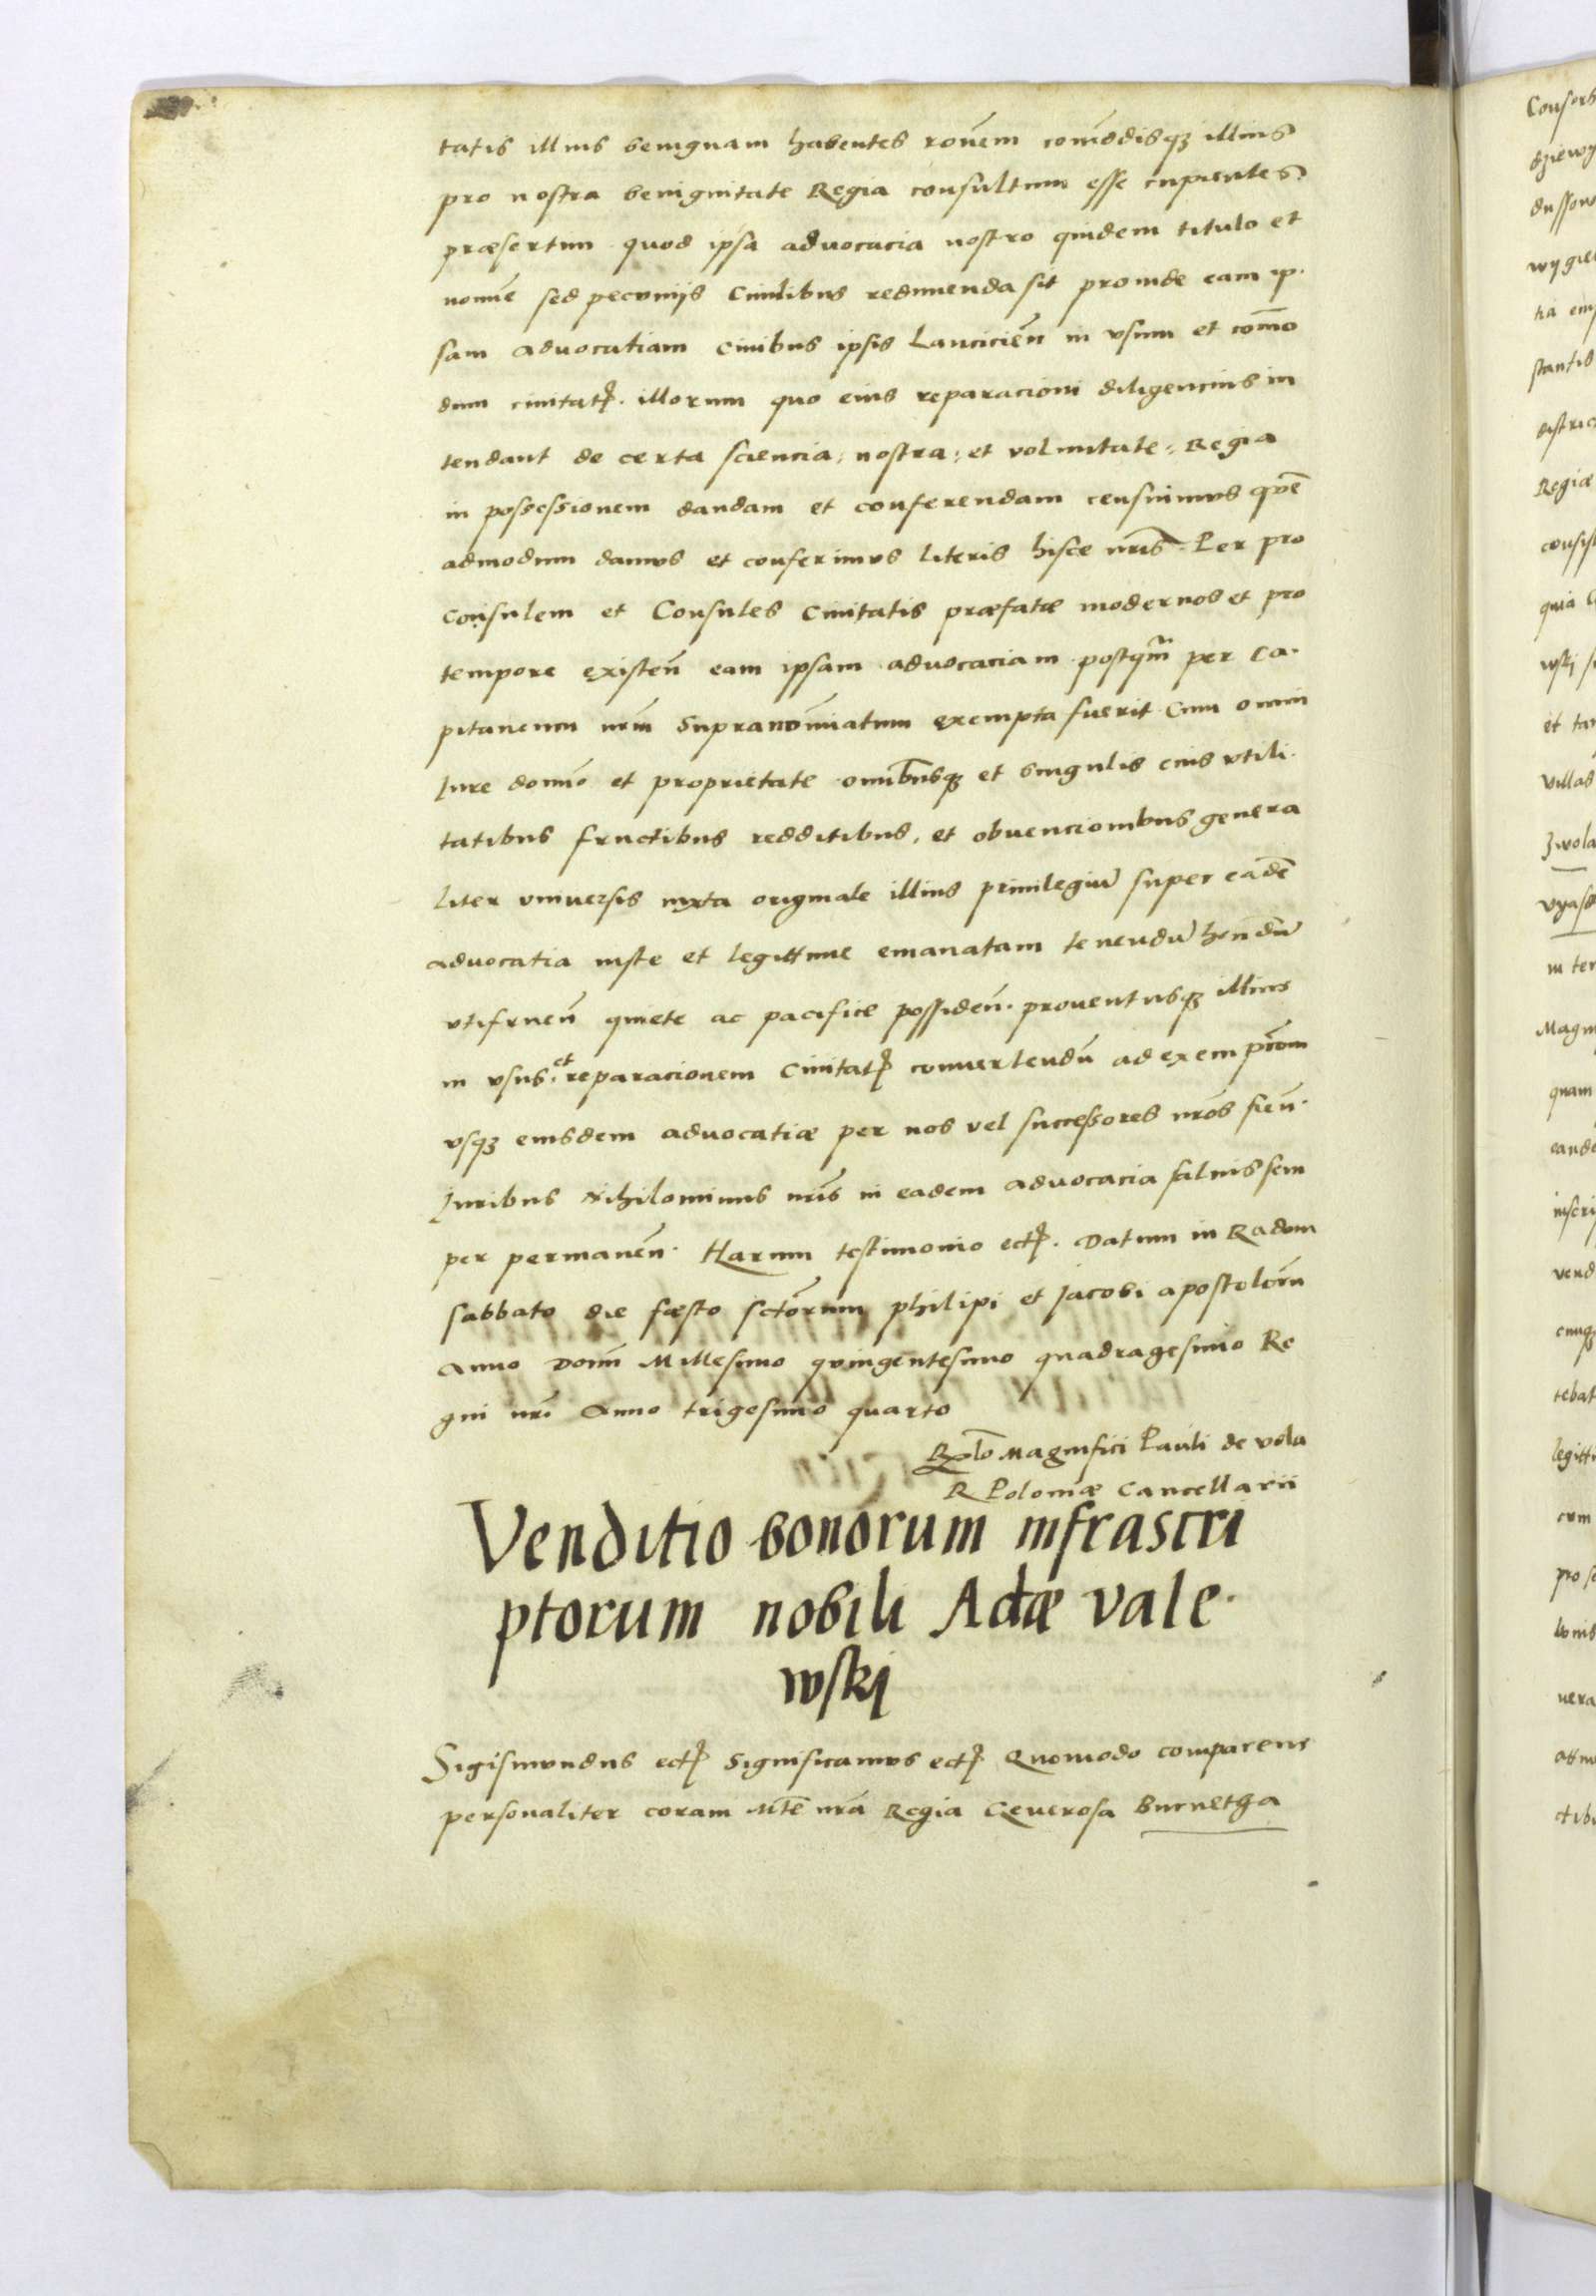 tatis illius benignam habentes rōnem com̄ōdisqȝ illius
pro nostra benignitate Regia consultum esse cupientes
præsertim quod ipsa advocacia nostro quidem titulo et
nomīe sed pecunijs Civilibus redimenda sit proinde eam ip-
sam advocatiam civibus ipsis Lancicień in vsum et com̄o
dum civitatꝭ illorum quo eius reparacioni diligencius in
tendant de certa sciencia nostra et voluntate Regia
in possessionem dandam et conferendam censuimus quē
admodum damus et conferimus literis hisce nr̄is Per pro
consulem et Consules Civitatis præfatæ modernos et pro
tempore existeń eam ipsam advocaciam postqm̄ per Ca-
pitaneum nrm̄ supranōminatum exempta fuerit Cum omni
Iure domīo et proprietate omībusqȝ et singulis eius vtili-
tatibus fructibus redditibus, et obuencionibus genera
liter vniuersis iuxta originale illius privilegiū super eadē
advocatia iuste et legittime emanatam tenendū hendū
vtifrueń quiete ac pacifice possideń. proventusqȝ illius
in vsus et reparacionem Civitatꝭ convertendū ad exempcōm
vsqȝ eiusdem advocatiæ per nos vel successores nr̄os fień.
Juribus Nihilominus nr̄is in eadem advocacia salvis sem
per permaneń. Harum testimonio ectꝭ. Datum in Radom
sabbato die fæsto sctōrum philipi et Jacobi apostolorū
Anno Domī Millesimo quingentesimo quadragesimo Re
gni nrī Anno trigesimo quarto
Rō Magnifici Pauli de vola
R Poloniæ Cancellarii
Venditio bonorum infrascri
ptorum nobili Adæ vale-
wskj
Sigismundus ectꝭ Significamus ectꝭ Quomodo comparens
personaliter coram Mtē nrā Regia Generosa Burnetha